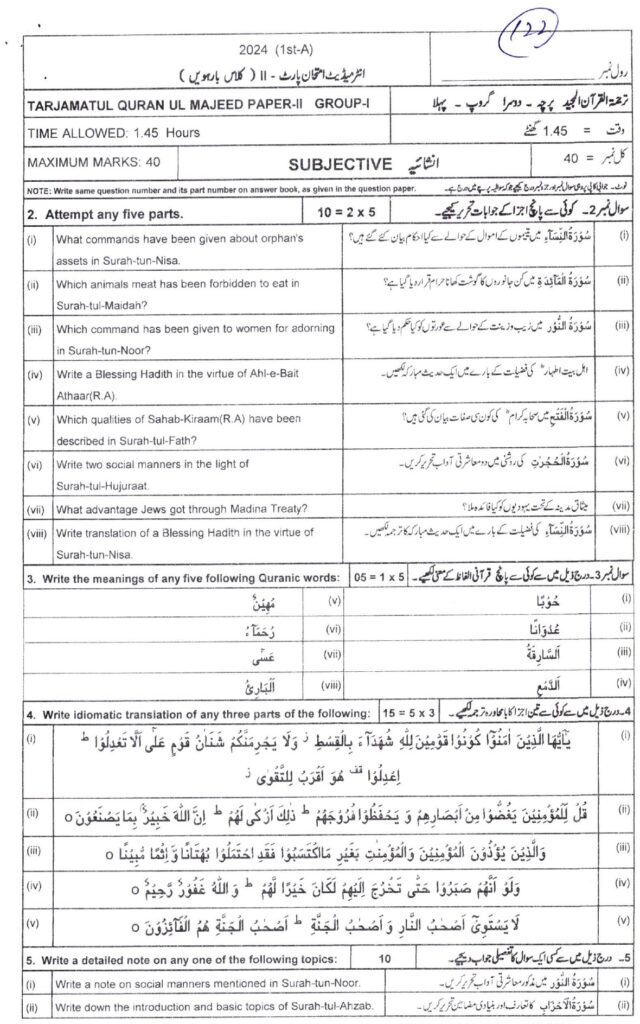 122
2024 (1st-A)
رول نمبر
انٹرمیڈیٹ امتحان پارٹ - II (کلاس بارہویں)
TARJAMATUL QURAN UL MAJEED PAPER-II GROUP-I
ترجمۃ القرآن المجید پرچہ - دوسرا گروپ - پہلا
TIME ALLOWED: 1.45 Hours
وقت = 1.45 گھنٹے
MAXIMUM MARKS: 40
SUBJECTIVE انشائیہ
کل نمبر = 40
NOTE: Write same question number and its part number on answer book, as given in the question paper.
نوٹ۔ جوابی کاپی پر وہی سوال نمبر اور جزو نمبر درج کیجیے جو کہ سوالیہ پرچے میں درج ہے۔
2. Attempt any five parts. 10 = 2 x 5
سوال نمبر 2۔ کوئی سے پانچ اجزا کے جوابات تحریر کیجیے۔
(i) What commands have been given about orphan's
assets in Surah-tun-Nisa.
سُوْرَۃُ النِّسَآءِ میں یتیموں کے اموال کے حوالے سے کیا احکام بیان کئے گئے ہیں؟ (i)
(ii) Which animals meat has been forbidden to eat in
Surah-tul-Maidah?
سُوْرَۃُ الْمَآئِدَۃِ میں کن جانوروں کا گوشت کھانا حرام قرار دیا گیا ہے؟ (ii)
(iii) Which command has been given to women for adorning
in Surah-tun-Noor?
سُوْرَۃُ النُّوْرِ میں زیب و زینت کے حوالے سے عورتوں کو کیا حکم دیا گیا ہے؟ (iii)
(iv) Write a Blessing Hadith in the virtue of Ahl-e-Bait
Athaar(R.A).
اہل بیت اطہارؓ کی فضیلت کے بارے میں ایک حدیث مبارکہ لکھیں۔ (iv)
(v) Which qualities of Sahab-Kiraam(R.A) have been
described in Surah-tul-Fath?
سُوْرَۃُ الْفَتْحِ میں صحابہ کرامؓ کی کون سی صفات بیان کی گئی ہیں؟ (v)
(vi) Write two social manners in the light of
Surah-tul-Hujuraat.
سُوْرَۃُ الْحُجُرٰتِ کی روشنی میں دو معاشرتی آداب تحریر کریں۔ (vi)
(vii) What advantage Jews got through Madina Treaty?
میثاق مدینہ کے تحت یہودیوں کو کیا فائدہ ملا؟ (vii)
(viii) Write translation of a Blessing Hadith in the virtue of
Surah-tun-Nisa.
سُوْرَۃُ النِّسَآءِ کی فضیلت کے بارے میں ایک حدیث مبارکہ کا ترجمہ لکھیں۔ (viii)
3. Write the meanings of any five following Quranic words: 05 = 1 x 5
سوال نمبر 3۔ درج ذیل میں سے کوئی سے پانچ قرآنی الفاظ کے معنی لکھیے۔
(i) حُوْبًا (v) مُهِيْنٌ
(ii) عُدْوَانًا (vi) رُحَمَآءُ
(iii) اَلسَّارِقَةُ (vii) عَسٰى
(iv) اَلدَّمْعِ (viii) اَلْبَارِئُ
4. Write idiomatic translation of any three parts of the following: 15 = 5 x 3
4۔ درج ذیل میں سے کوئی سے تین اجزا کا بامحاورہ ترجمہ لکھیے۔
(i) يٰٓاَيُّهَا الَّذِيْنَ اٰمَنُوْا كُوْنُوْا قَوّٰمِيْنَ لِلّٰهِ شُهَدَآءَ بِالْقِسْطِ ز وَلَا يَجْرِمَنَّكُمْ شَنَاٰنُ قَوْمٍ عَلٰٓى اَلَّا تَعْدِلُوْا ط (i)
اِعْدِلُوْا قف هُوَ اَقْرَبُ لِلتَّقْوٰى ز
(ii) قُلْ لِّلْمُؤْمِنِيْنَ يَغُضُّوْا مِنْ اَبْصَارِهِمْ وَ يَحْفَظُوْا فُرُوْجَهُمْ ط ذٰلِكَ اَزْكٰى لَهُمْ ط اِنَّ اللّٰهَ خَبِيْرٌۢ بِمَا يَصْنَعُوْنَ o (ii)
(iii) وَالَّذِيْنَ يُؤْذُوْنَ الْمُؤْمِنِيْنَ وَالْمُؤْمِنٰتِ بِغَيْرِ مَا اكْتَسَبُوْا فَقَدِ احْتَمَلُوْا بُهْتَانًا وَّاِثْمًا مُّبِيْنًا o (iii)
(iv) وَلَوْ اَنَّهُمْ صَبَرُوْا حَتّٰى تَخْرُجَ اِلَيْهِمْ لَكَانَ خَيْرًا لَّهُمْ ط وَاللّٰهُ غَفُوْرٌ رَّحِيْمٌ o (iv)
(v) لَا يَسْتَوِيْٓ اَصْحٰبُ النَّارِ وَ اَصْحٰبُ الْجَنَّةِ ط اَصْحٰبُ الْجَنَّةِ هُمُ الْفَآئِزُوْنَ o (v)
5. Write a detailed note on any one of the following topics: 10
5۔ درج ذیل میں سے کسی ایک سوال کا تفصیلی جواب دیجیے۔
(i) Write a note on social manners mentioned in Surah-tun-Noor.
سُوْرَۃُ النُّوْرِ میں مذکور معاشرتی آداب تحریر کریں۔ (i)
(ii) Write down the introduction and basic topics of Surah-tul-Ahzab.
سُوْرَۃُ الْاَحْزَابِ کا تعارف اور بنیادی مضامین تحریر کریں۔ (ii)